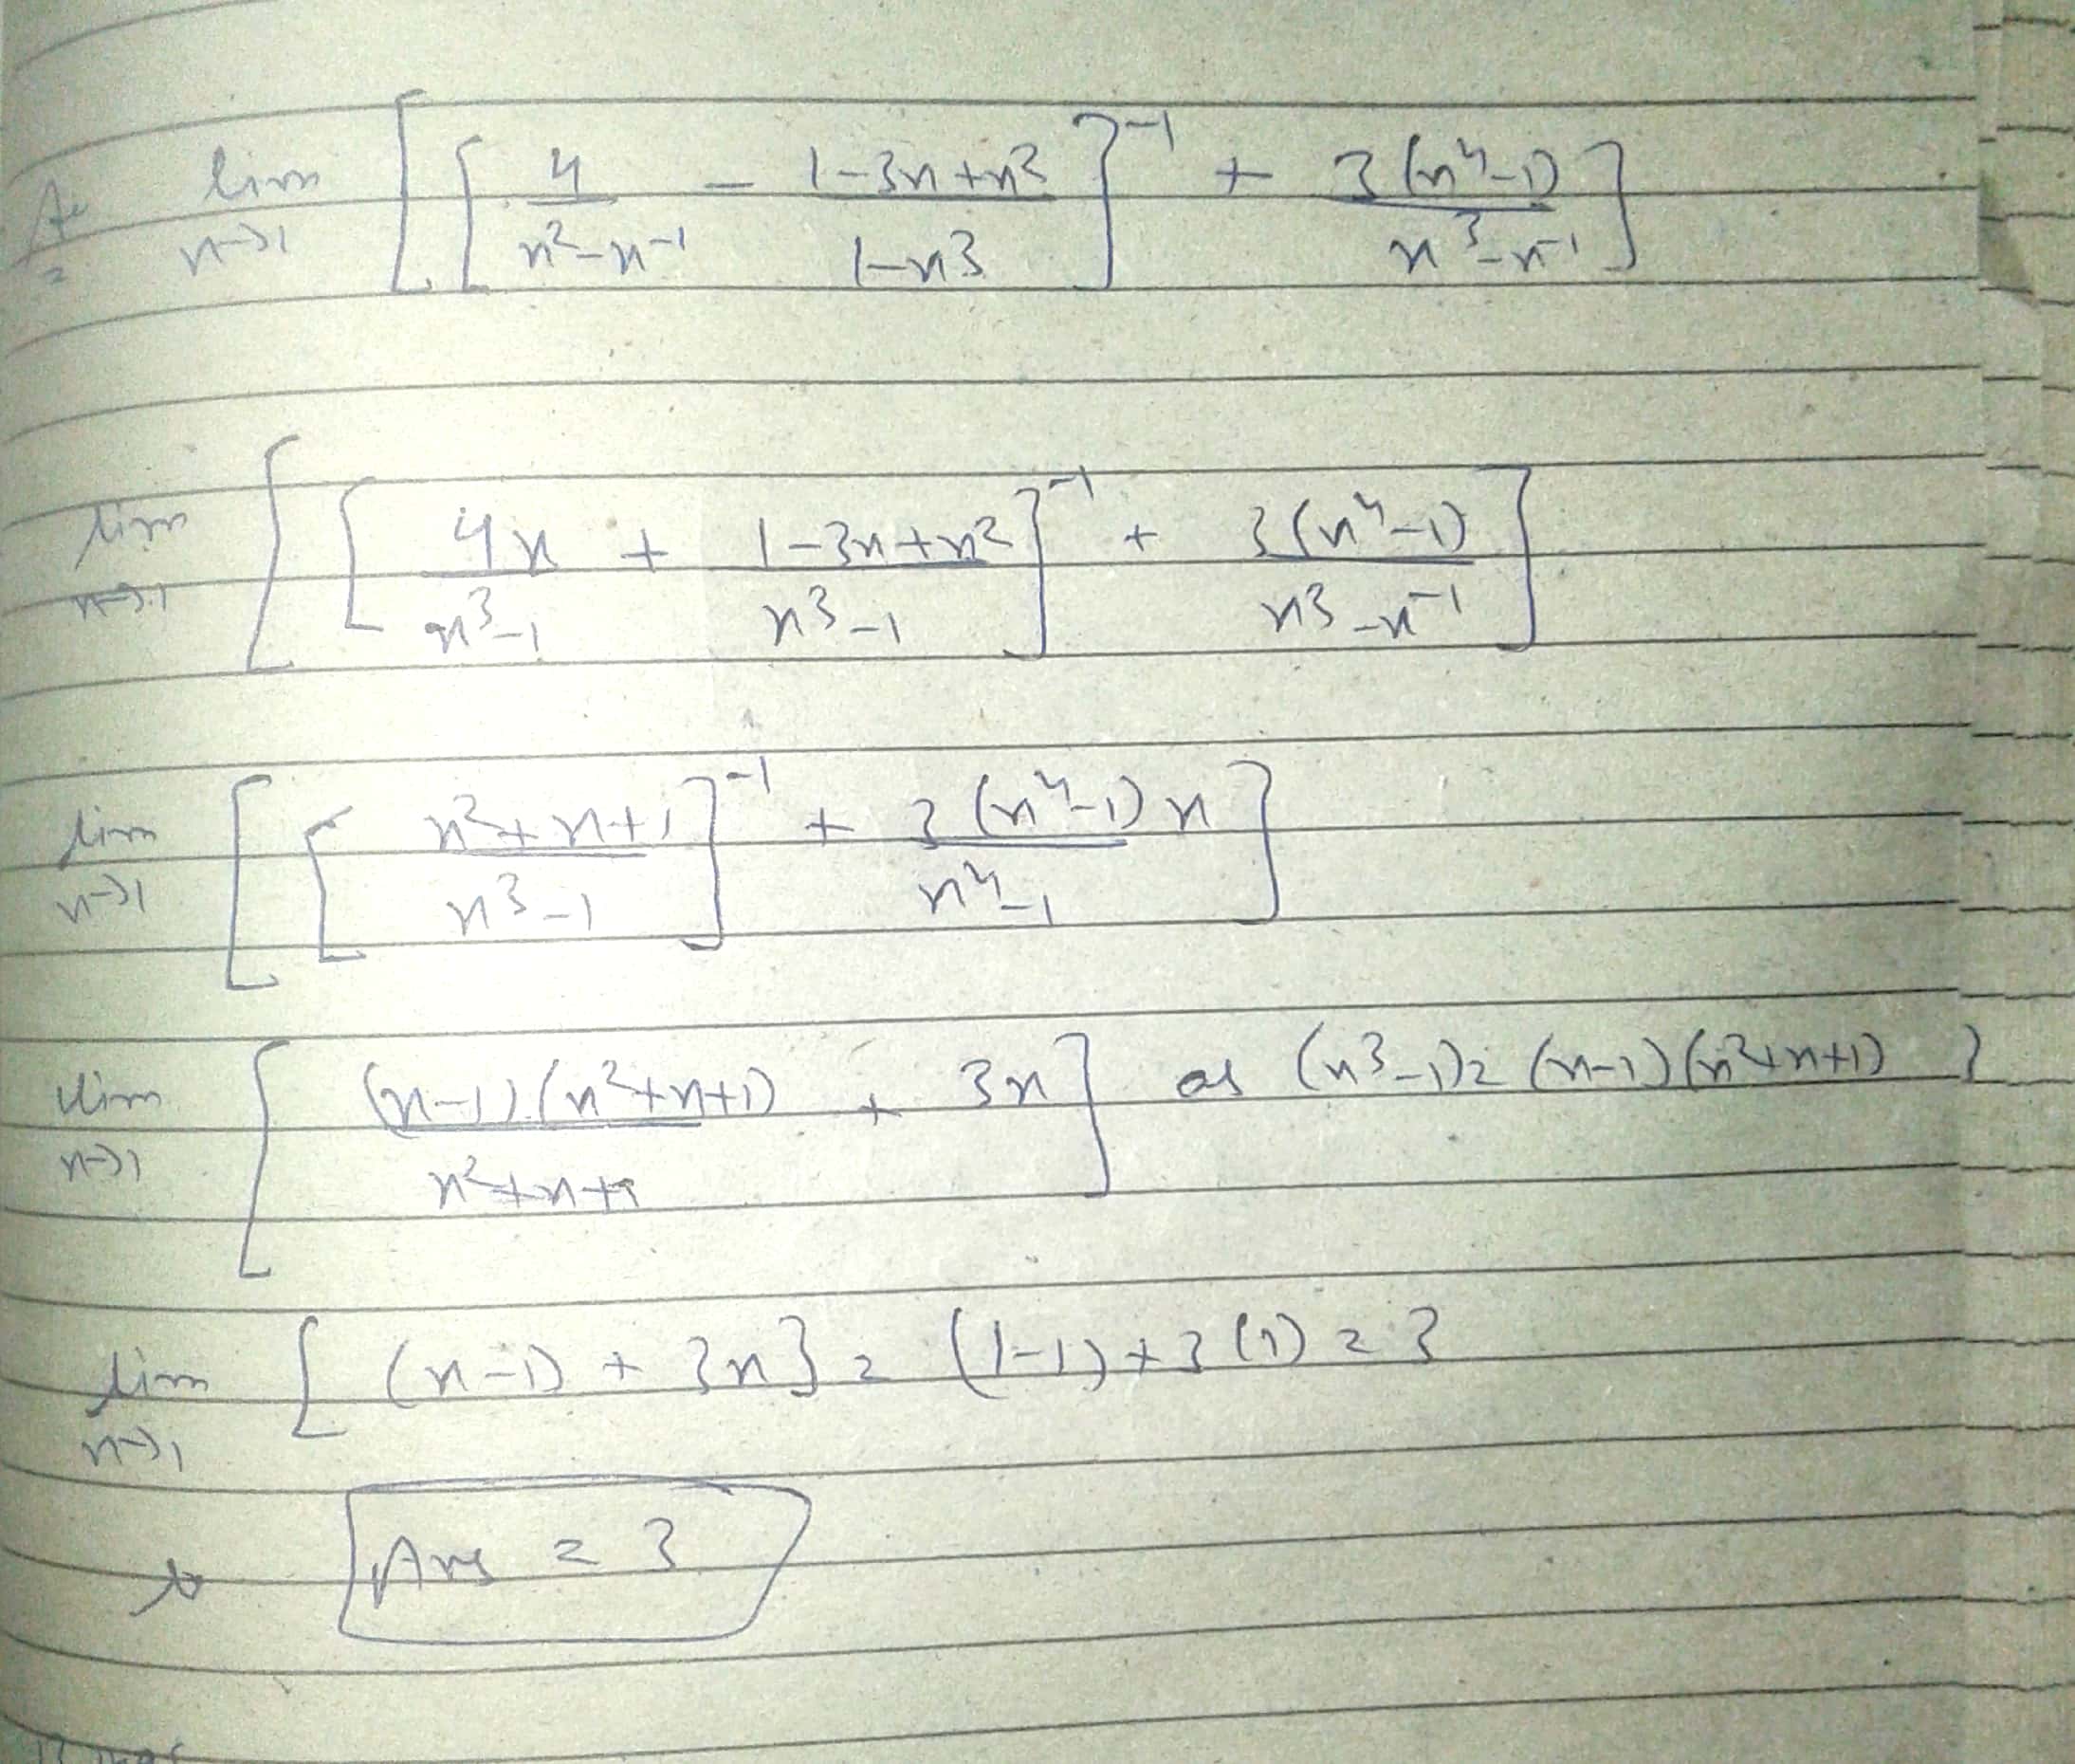 lim n→1 [ [ 4/(n²-n⁻¹) - (1-3n+n²)/(1-n3) ]⁻¹ + 3(n⁴-1)/(n³-n⁻¹) ]
lim n→1 [ [ 4n/(n³-1) + (1-3n+n²)/(n3-1) ]⁻¹ + 3(n⁴-1)/(n3-n⁻¹) ]
lim n→1 [ [ (n²+n+1)/(n3-1) ]⁻¹ + 3(n⁴-1)n/(n⁴-1) ]
lim n→1 [ (n-1)(n²+n+1)/(n²+n+1) + 3n ] as (n3-1) = (n-1)(n²+n+1) }
lim n→1 [ (n-1) + 3n } = (1-1)+3(1) = 3
Ans = 3